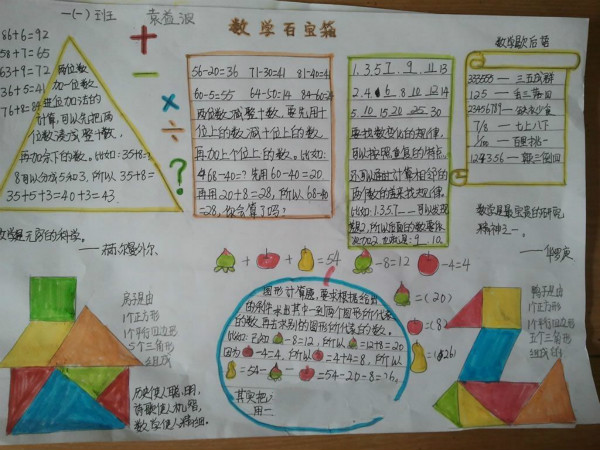 一(一)班 袁益波
数学百宝箱
86+6=92
58+7=65
63+9=72
36+5=41
76+8=84
两位数
加一位数
进位加法的
计算,可以先把两
位数凑成整十数,
再加余下的数。比如:35+8=?
8可以分成5和3,所以35+8=
35+5+3=40+3=43.
56-20=36 71-30=41 81-40=4
60-5=55 64-50=14 84-60=
两位数减整十数,要先用十
位上的数减十位上的数,
再加上个位上的数。比如:
68-40=?先用60-40=20
再用20+8=28,所以68-40
=28,你会算了吗?
1.3.5.7.9.11 13
2.4.6.8.10.12.14
5.10.15.20.25.30
要找数变化的规律,
可以按照重复的特点,
还可以用计算相邻的
两个数的差来找规律。
数学歇后语
333555 — 三五成群
125 — 丢三落四
23456789 — 缺衣少食
7/8 — 七上八下
1/100 — 百里挑一
124356 — 颠三倒四
数学是无穷的科学。
——赫尔曼外尔
数学是最宝贵的研究
精神之一。
——华罗庚
+ + =54 -8=12 -4=4
=(20)
=(8)
=(26)
图形计算题,要求根据给出
的条件求出其中一到两个图形所代表
的数,再去求别的图形所代表的数。
比如:因为 -8=12,所以 =12+8=20
因为 -4=4,所以 =4+4=8,所以
=54- - =54-20-8=26。
房子是由
1个正方形
1个平行四边形
5个三角形
组成
鸭子是由
1个正方形
1个平行四边形
五个三角形
组成的
历史使人聪明,
诗歌使人机智,
数学使人精细。